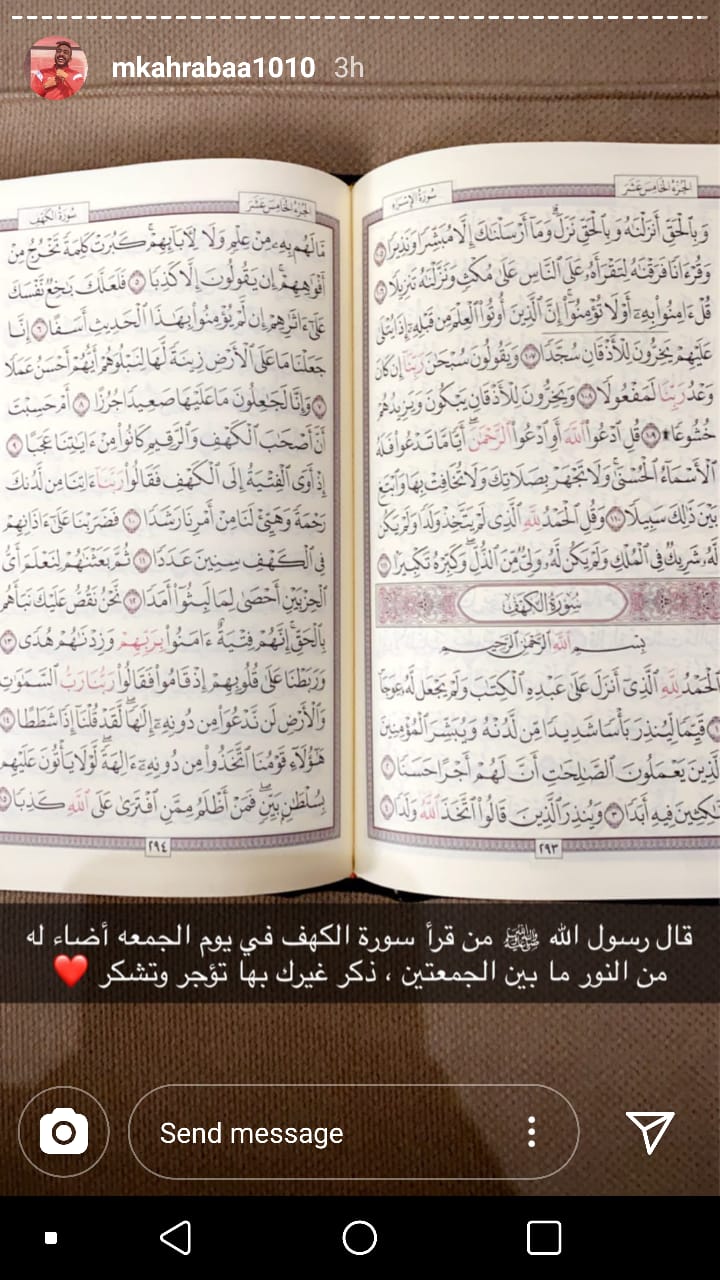 mkahrabaa1010 3h
الجزء الخامس عشر سورة الإسراء
وَبِٱلْحَقِّ أَنزَلْنَٰهُ وَبِٱلْحَقِّ نَزَلَ وَمَآ أَرْسَلْنَٰكَ إِلَّا مُبَشِّرًا وَنَذِيرًا ١٠٥
وَقُرْءَانًا فَرَقْنَٰهُ لِتَقْرَأَهُۥ عَلَى ٱلنَّاسِ عَلَىٰ مُكْثٍ وَنَزَّلْنَٰهُ تَنزِيلًا ١٠٦
قُلْ ءَامِنُوا۟ بِهِۦٓ أَوْ لَا تُؤْمِنُوٓا۟ إِنَّ ٱلَّذِينَ أُوتُوا۟ ٱلْعِلْمَ مِن قَبْلِهِۦٓ إِذَا يُتْلَىٰ
عَلَيْهِمْ يَخِرُّونَ لِلْأَذْقَانِ سُجَّدًا ١٠٧ وَيَقُولُونَ سُبْحَٰنَ رَبِّنَآ إِن كَانَ
وَعْدُ رَبِّنَا لَمَفْعُولًا ١٠٨ وَيَخِرُّونَ لِلْأَذْقَانِ يَبْكُونَ وَيَزِيدُهُمْ
خُشُوعًا ۩ ١٠٩ قُلِ ٱدْعُوا۟ ٱللَّهَ أَوِ ٱدْعُوا۟ ٱلرَّحْمَٰنَ أَيًّا مَّا تَدْعُوا۟ فَلَهُ
ٱلْأَسْمَآءُ ٱلْحُسْنَىٰ وَلَا تَجْهَرْ بِصَلَاتِكَ وَلَا تُخَافِتْ بِهَا وَٱبْتَغِ
بَيْنَ ذَٰلِكَ سَبِيلًا ١١٠ وَقُلِ ٱلْحَمْدُ لِلَّهِ ٱلَّذِى لَمْ يَتَّخِذْ وَلَدًا وَلَمْ يَكُن
لَّهُۥ شَرِيكٌ فِى ٱلْمُلْكِ وَلَمْ يَكُن لَّهُۥ وَلِىٌّ مِّنَ ٱلذُّلِّ وَكَبِّرْهُ تَكْبِيرًا ١١١
سُورَةُ الكَهْفِ
بِسْمِ ٱللَّهِ ٱلرَّحْمَٰنِ ٱلرَّحِيمِ
ٱلْحَمْدُ لِلَّهِ ٱلَّذِىٓ أَنزَلَ عَلَىٰ عَبْدِهِ ٱلْكِتَٰبَ وَلَمْ يَجْعَل لَّهُۥ عِوَجَا
١ قَيِّمًا لِّيُنذِرَ بَأْسًا شَدِيدًا مِّن لَّدُنْهُ وَيُبَشِّرَ ٱلْمُؤْمِنِينَ
ٱلَّذِينَ يَعْمَلُونَ ٱلصَّٰلِحَٰتِ أَنَّ لَهُمْ أَجْرًا حَسَنًا ٢
مَّٰكِثِينَ فِيهِ أَبَدًا ٣ وَيُنذِرَ ٱلَّذِينَ قَالُوا۟ ٱتَّخَذَ ٱللَّهُ وَلَدًا ٤
٢٩٣
الجزء الخامس عشر سورة الكهف
مَّا لَهُم بِهِۦ مِنْ عِلْمٍ وَلَا لِءَابَآئِهِمْ كَبُرَتْ كَلِمَةً تَخْرُجُ مِنْ
أَفْوَٰهِهِمْ إِن يَقُولُونَ إِلَّا كَذِبًا ٥ فَلَعَلَّكَ بَٰخِعٌ نَّفْسَكَ
عَلَىٰٓ ءَاثَٰرِهِمْ إِن لَّمْ يُؤْمِنُوا۟ بِهَٰذَا ٱلْحَدِيثِ أَسَفًا ٦ إِنَّا
جَعَلْنَا مَا عَلَى ٱلْأَرْضِ زِينَةً لَّهَا لِنَبْلُوَهُمْ أَيُّهُمْ أَحْسَنُ عَمَلًا
٧ وَإِنَّا لَجَٰعِلُونَ مَا عَلَيْهَا صَعِيدًا جُرُزًا ٨ أَمْ حَسِبْتَ
أَنَّ أَصْحَٰبَ ٱلْكَهْفِ وَٱلرَّقِيمِ كَانُوا۟ مِنْ ءَايَٰتِنَا عَجَبًا ٩
إِذْ أَوَى ٱلْفِتْيَةُ إِلَى ٱلْكَهْفِ فَقَالُوا۟ رَبَّنَآ ءَاتِنَا مِن لَّدُنكَ
رَحْمَةً وَهَيِّئْ لَنَا مِنْ أَمْرِنَا رَشَدًا ١٠ فَضَرَبْنَا عَلَىٰٓ ءَاذَانِهِمْ
فِى ٱلْكَهْفِ سِنِينَ عَدَدًا ١١ ثُمَّ بَعَثْنَٰهُمْ لِنَعْلَمَ أَىُّ
ٱلْحِزْبَيْنِ أَحْصَىٰ لِمَا لَبِثُوٓا۟ أَمَدًا ١٢ نَّحْنُ نَقُصُّ عَلَيْكَ نَبَأَهُم
بِٱلْحَقِّ إِنَّهُمْ فِتْيَةٌ ءَامَنُوا۟ بِرَبِّهِمْ وَزِدْنَٰهُمْ هُدًى ١٣
وَرَبَطْنَا عَلَىٰ قُلُوبِهِمْ إِذْ قَامُوا۟ فَقَالُوا۟ رَبُّنَا رَبُّ ٱلسَّمَٰوَٰتِ
وَٱلْأَرْضِ لَن نَّدْعُوَا۟ مِن دُونِهِۦٓ إِلَٰهًا لَّقَدْ قُلْنَآ إِذًا شَطَطًا ١٤
هَٰٓؤُلَآءِ قَوْمُنَا ٱتَّخَذُوا۟ مِن دُونِهِۦٓ ءَالِهَةً لَّوْلَا يَأْتُونَ عَلَيْهِم
بِسُلْطَٰنٍ بَيِّنٍ فَمَنْ أَظْلَمُ مِمَّنِ ٱفْتَرَىٰ عَلَى ٱللَّهِ كَذِبًا ١٥
٢٩٤
قال رسول الله ﷺ من قرأ سورة الكهف في يوم الجمعه أضاء له
من النور ما بين الجمعتين ، ذكر غيرك بها تؤجر وتشكر ❤️
Send message